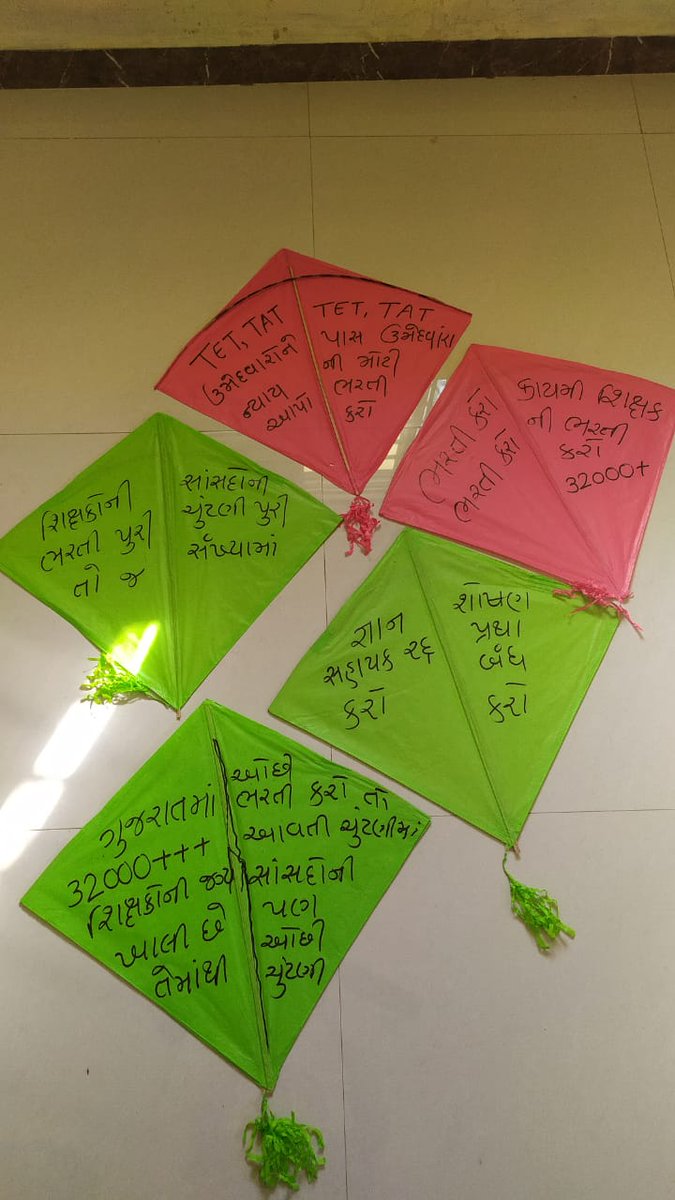 TET, TAT
ઉમેદવારોને
ન્યાય
આપો
TET, TAT
પાસ ઉમેદવારો
ની મોટી
ભરતી
કરો
ભરતી કરો
ભરતી કરો
કાયમી શિક્ષક
ની ભરતી
કરો
32000+
શિક્ષકોની
ભરતી પુરી
તો જ
સાંસદોની
ચુંટણી પુરી
સઁખ્યામાં
જ્ઞાન
સહાયક રદ્દ
કરો
શોષણ
પ્રથા
બંધ
કરો
ગુજરાતમાં
32000+++
શિક્ષકોની જગ્યા
ખાલી છે
તેમાંથી
ઓછી
ભરતી કરો તો
આવતી ચુંટણીમાં
સાંસદોની
પણ
ઓછી
ચુંટણી